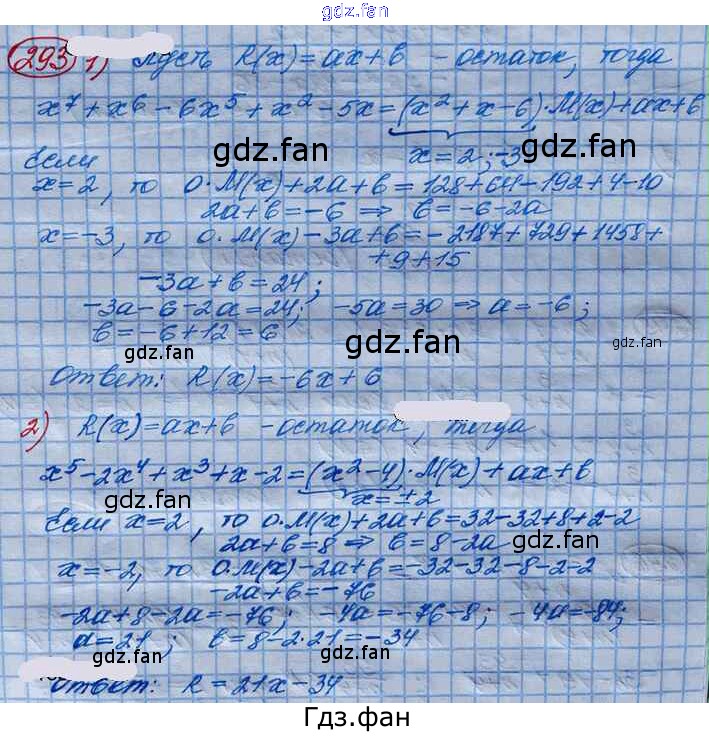 gdz.fan
293 1) Пусть R(x)=ax+b - остаток, тогда
x⁷+x⁶-6x⁵+x²-5x=(x²+x-6)·M(x)+ax+b
gdz.fan
Если x=2;-3
gdz.fan
x=2, то 0·M(x)+2a+b=128+64-192+4-10
2a+b=-6 ⇒ b=-6-2a
x=-3, то 0·M(x)-3a+b=-2187+729+1458+
+9+15
-3a+b=24;
-3a-6-2a=24; -5a=30 ⇒ a=-6;
b=-6+12=6
gdz.fan gdz.fan gdz.fan
Ответ: R(x)=-6x+6
2) R(x)=ax+b - остаток, тогда
gdz.fan
x⁵-2x⁴+x³+x-2=(x²-4)·M(x)+ax+b
x=±2
gdz.fan gdz.fan
Если x=2, то 0·M(x)+2a+b=32-32+8+2-2
2a+b=8 ⇒ b=8-2a
gdz.fan
x=-2, то 0·M(x)-2a+b=-32-32-8-2-2
-2a+b=-76
-2a+8-2a=-76; -4a=-76-8; -4a=-84;
a=21; b=8-2·21=-34
gdz.fan gdz.fan
Ответ: R=21x-34
Гдз.фан